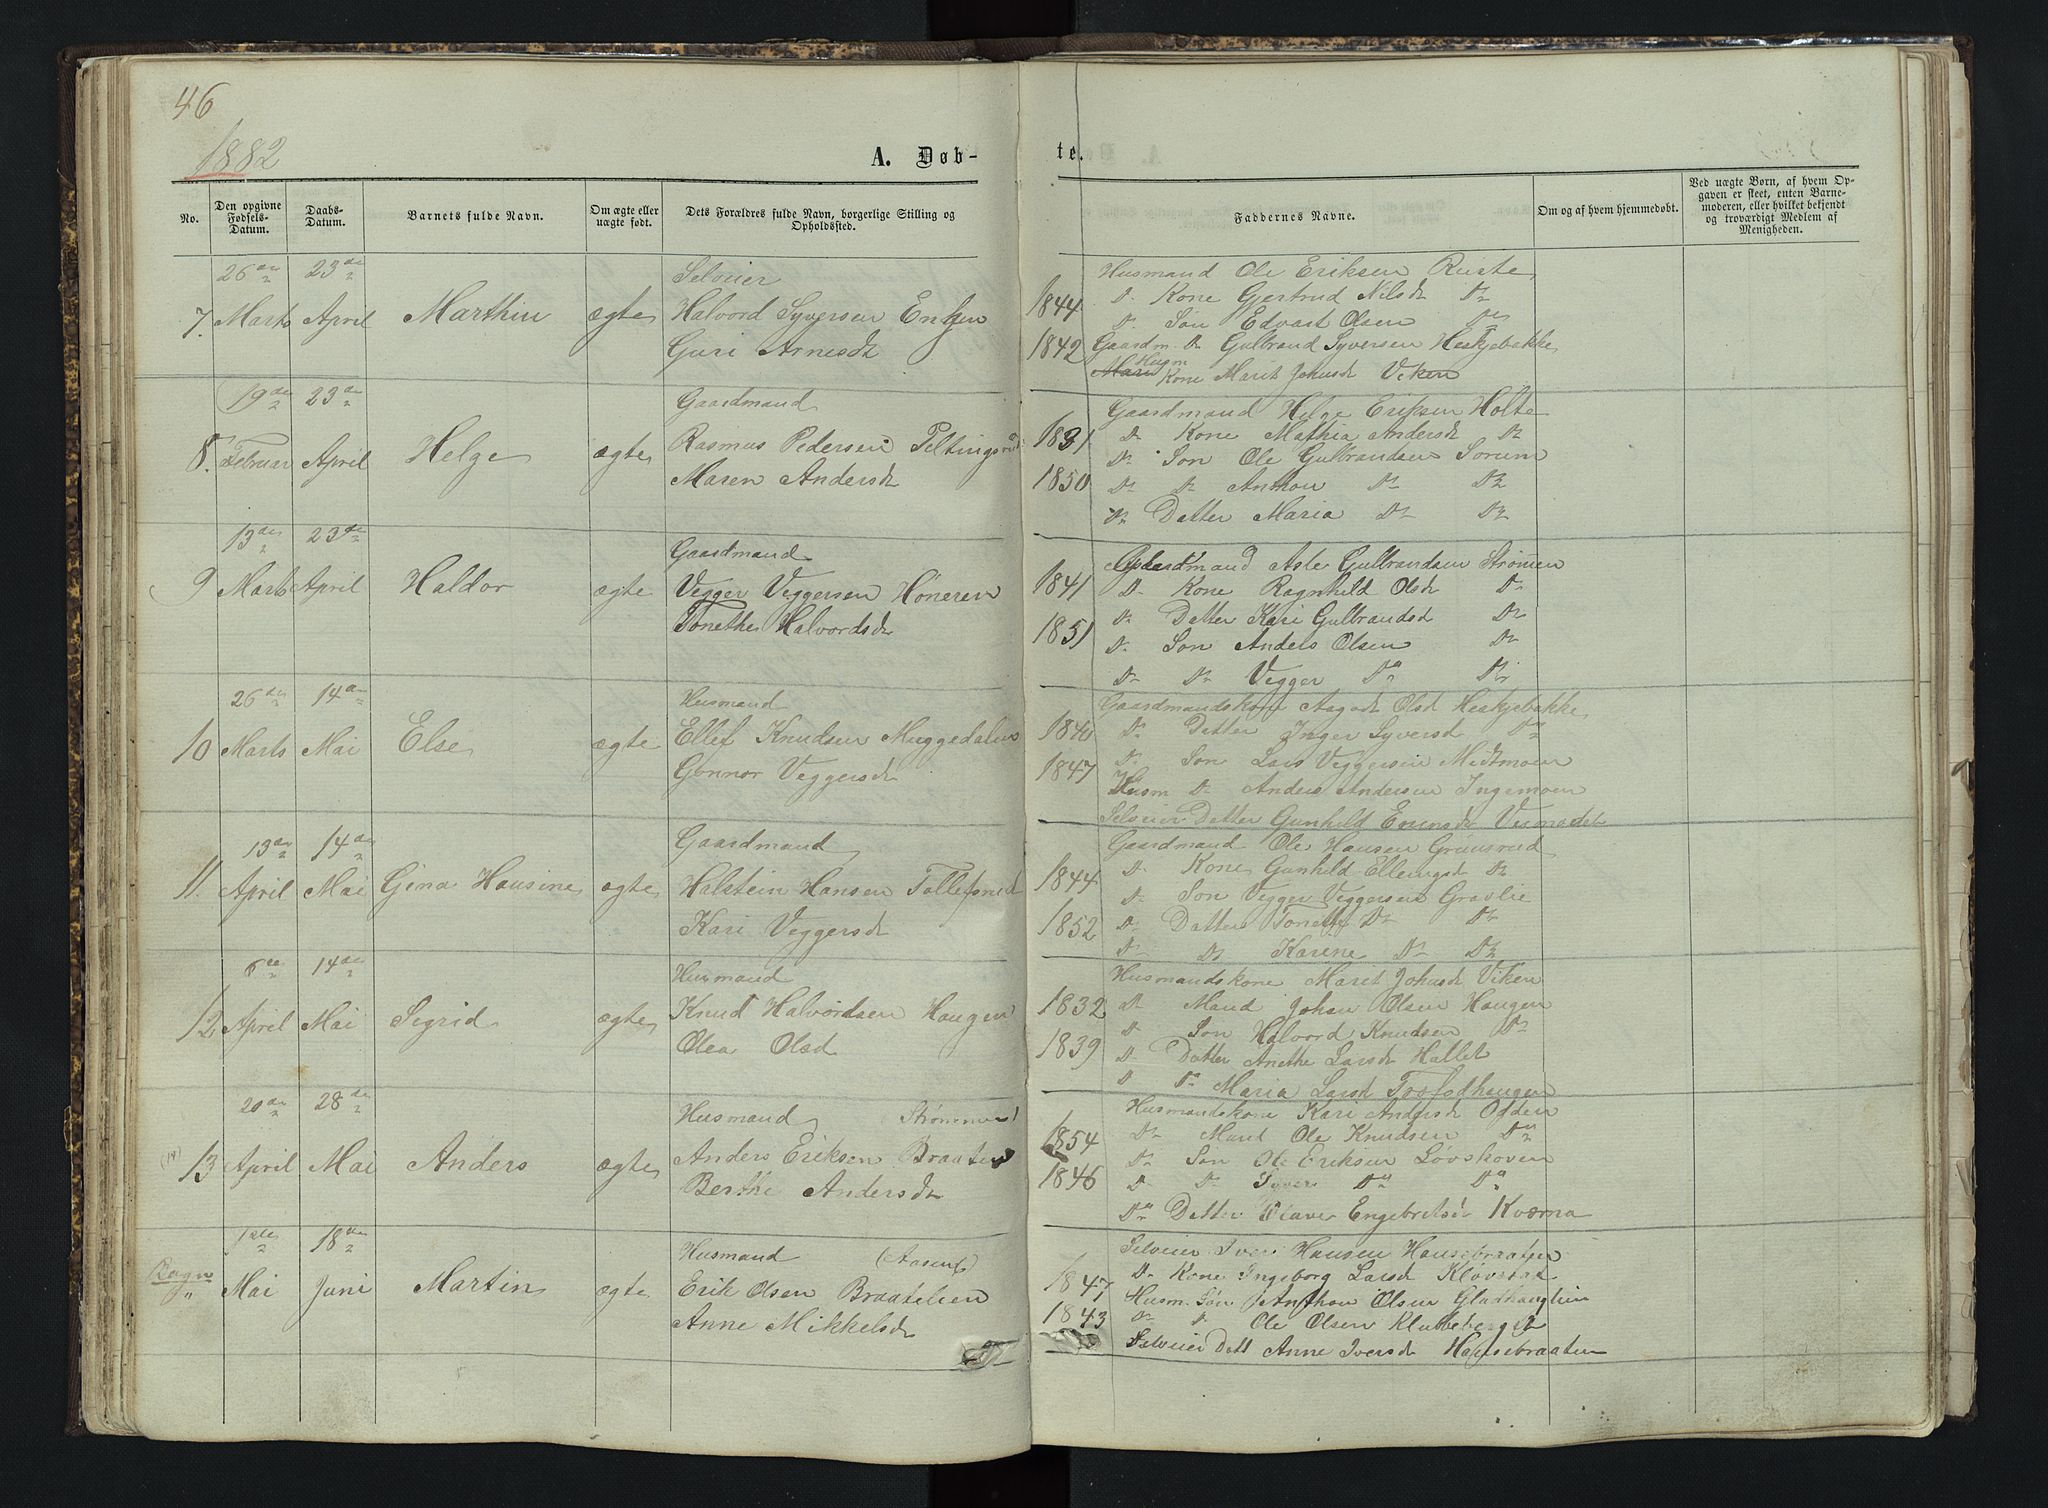 46
1882
A. Døb-
te.
No.
Den opgivne Fødsels-Datum.
Daabs-Datum.
Barnets fulde Navn.
Om ægte eller uægte født.
Dets Forældres fulde Navn, borgerlige Stilling og Opholdssted.
Faddernes Navne.
Om og af hvem hjemmedøbt.
Ved uægte Børn, af hvem Opgaven er skeet, enten Barnemoderen, eller hvilket bekjendt og troværdigt Medlem af Menigheden.
26de 23de Selveier
7. Marts April Marthin ægte Halvord Syversen Enger
Guri Arnesdt
1844
1842
Husmand Ole Eriksen Ruste
Do Kone Gjertrud Nilsdt Do
Do Søn Edvart Olsen Do
Gaardm. Do Gulbrand Syversen Heskjebakke
Husm Kone Marit Johnsdt Viken
19de 23de Gaardmand
8. Februar April Helge ægte Rasmus Pedersen Teltingsrud
Maren Andersdt
1831
1850
Gaardmand Helge Eriksen Holte
Do Kone Mathia Andersdt Do
Do Søn Ole Gulbrandsen Sorum
Do Do Anthon Do Do
Do Datter Maria Do Do
13de 23de Gaardmand
9 Marts April Haldor ægte Vegger Veggersen Høneren
Tonethe Halvordsdt
1841
1851
Gaardmand Asle Gulbrandsen Strømen
Do Kone Ragnhild Olsdt Do
Do Datter Kari Gulbrandsdt Do
Do Søn Anders Olsen Do
Do Do Vegger Do Do
26de 14de Husmand
10 Marts Mai Else ægte Ellef Knudsen Muggedalen
Gonnor Veggersdt
1840
1847
Gaardmandskone Aagot Olsd Heskjebakke
Do Datter Inger Syversdt Do
Do Søn Lars Veggersen Midtmoen
Husm Do Anders Andersen Ingemoen
Selveier Datter Gunhild
13de 14de Gaardmand
11. April Mai Gina Hansine ægte Halstein Hansen Tollefsrud
Kari Veggersdt
1844
1852
Gaardmand Ole Hansen Grimsrud
Do Kone Gunhild Ellensdt Do
Do Søn Vegger Veggersen Gravlie
Do Datter Tonethe Do Do
Do Do Karine Do Do
6te 14de Husmand
12 April Mai Sigrid ægte Knud Halvordsen Haugen
Olea Olsd
1832
1839
Husmandskone Marit Johnsdt Viken
Do Mand Johan Olsen Haugen
Do Søn Halvord Knudsen Do
Do Datter Anethe Larsdt Hallet
Do Do Maria Larsd
20de 28de Husmand
13 April Mai Anders ægte Anders Eriksen Braaten
Berthe Andersdt
1854
1846
Husmandskone Kari Andersdt Odden
Do Mand Ole Knudsen Do
Do Søn Ole Eriksen Løvskoven
Do Do Iver Do Do
Do Datter Engebretsd Kværna
1ste 18de Husmand (Aasen)
Bagn
" Mai Juni Martin ægte Erik Olsen Braatelien
Anne Mikkelsdt
1847
1843
Selveier Iver Hansen Hansebraaten
Do Kone Ingeborg Larsdt Kløvstad
Husm. Søn Anthon Olsen Gladhauglien
Do Do Ole Olsen Klubbeberget
Selveier Datt Anne Iversdt Hansebraaten